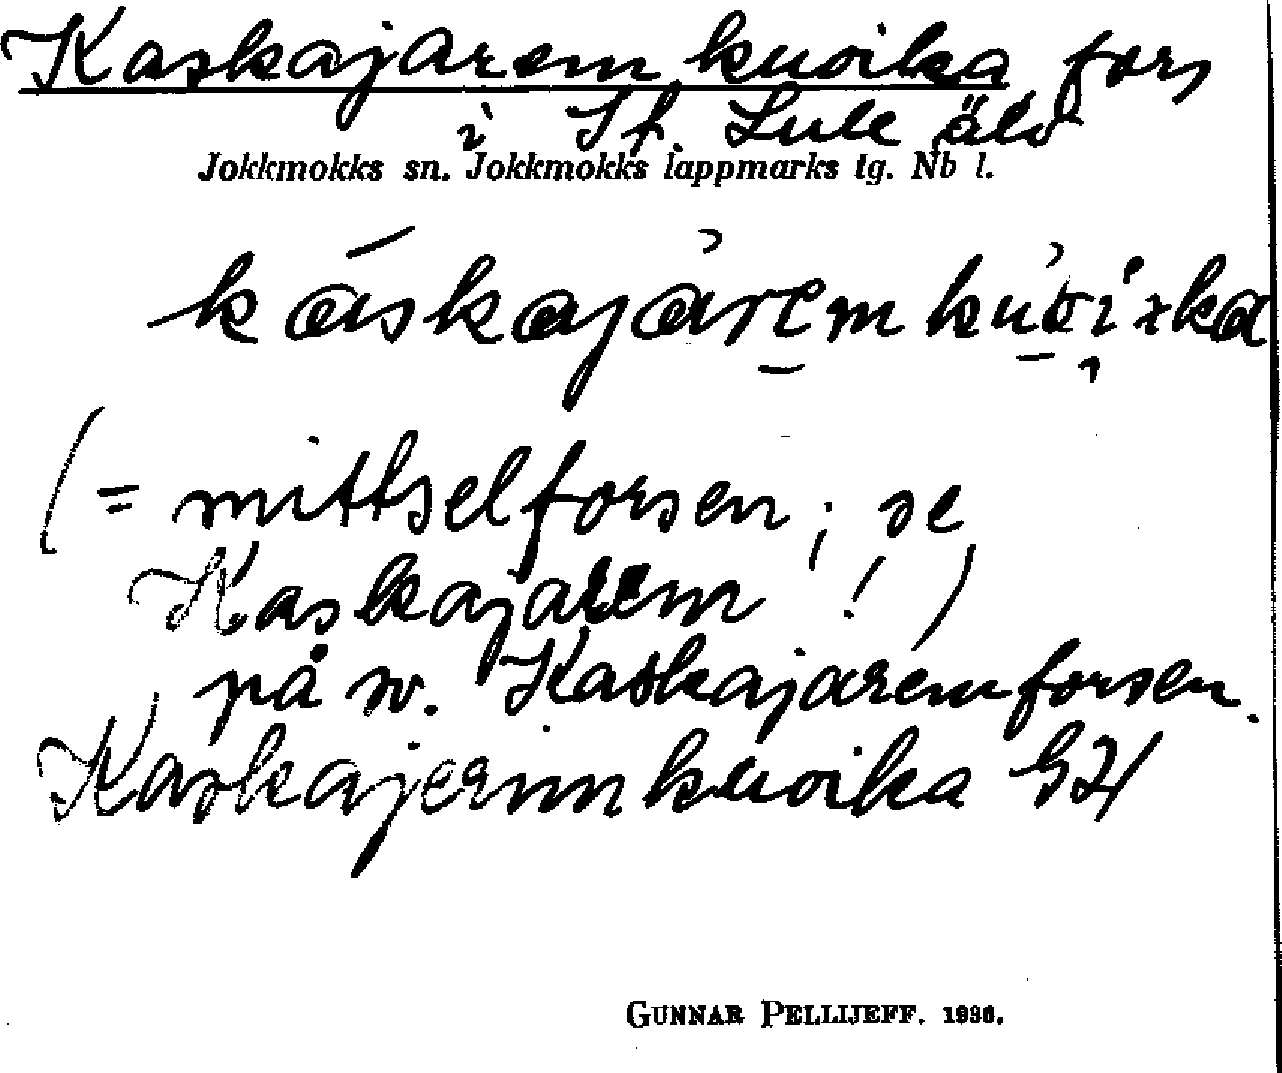 Kaskajaremkuoika fors
i St. Lule älv
Jokkmokks sn. Jokkmokks lappmarks tg. Nb l.
(= mittselforsen; se
Kaskajarem!)
på sv. Kaskajaremforsen.
Kaskajerimkuoika
GUNNAR PELLIJEFF. 1936.